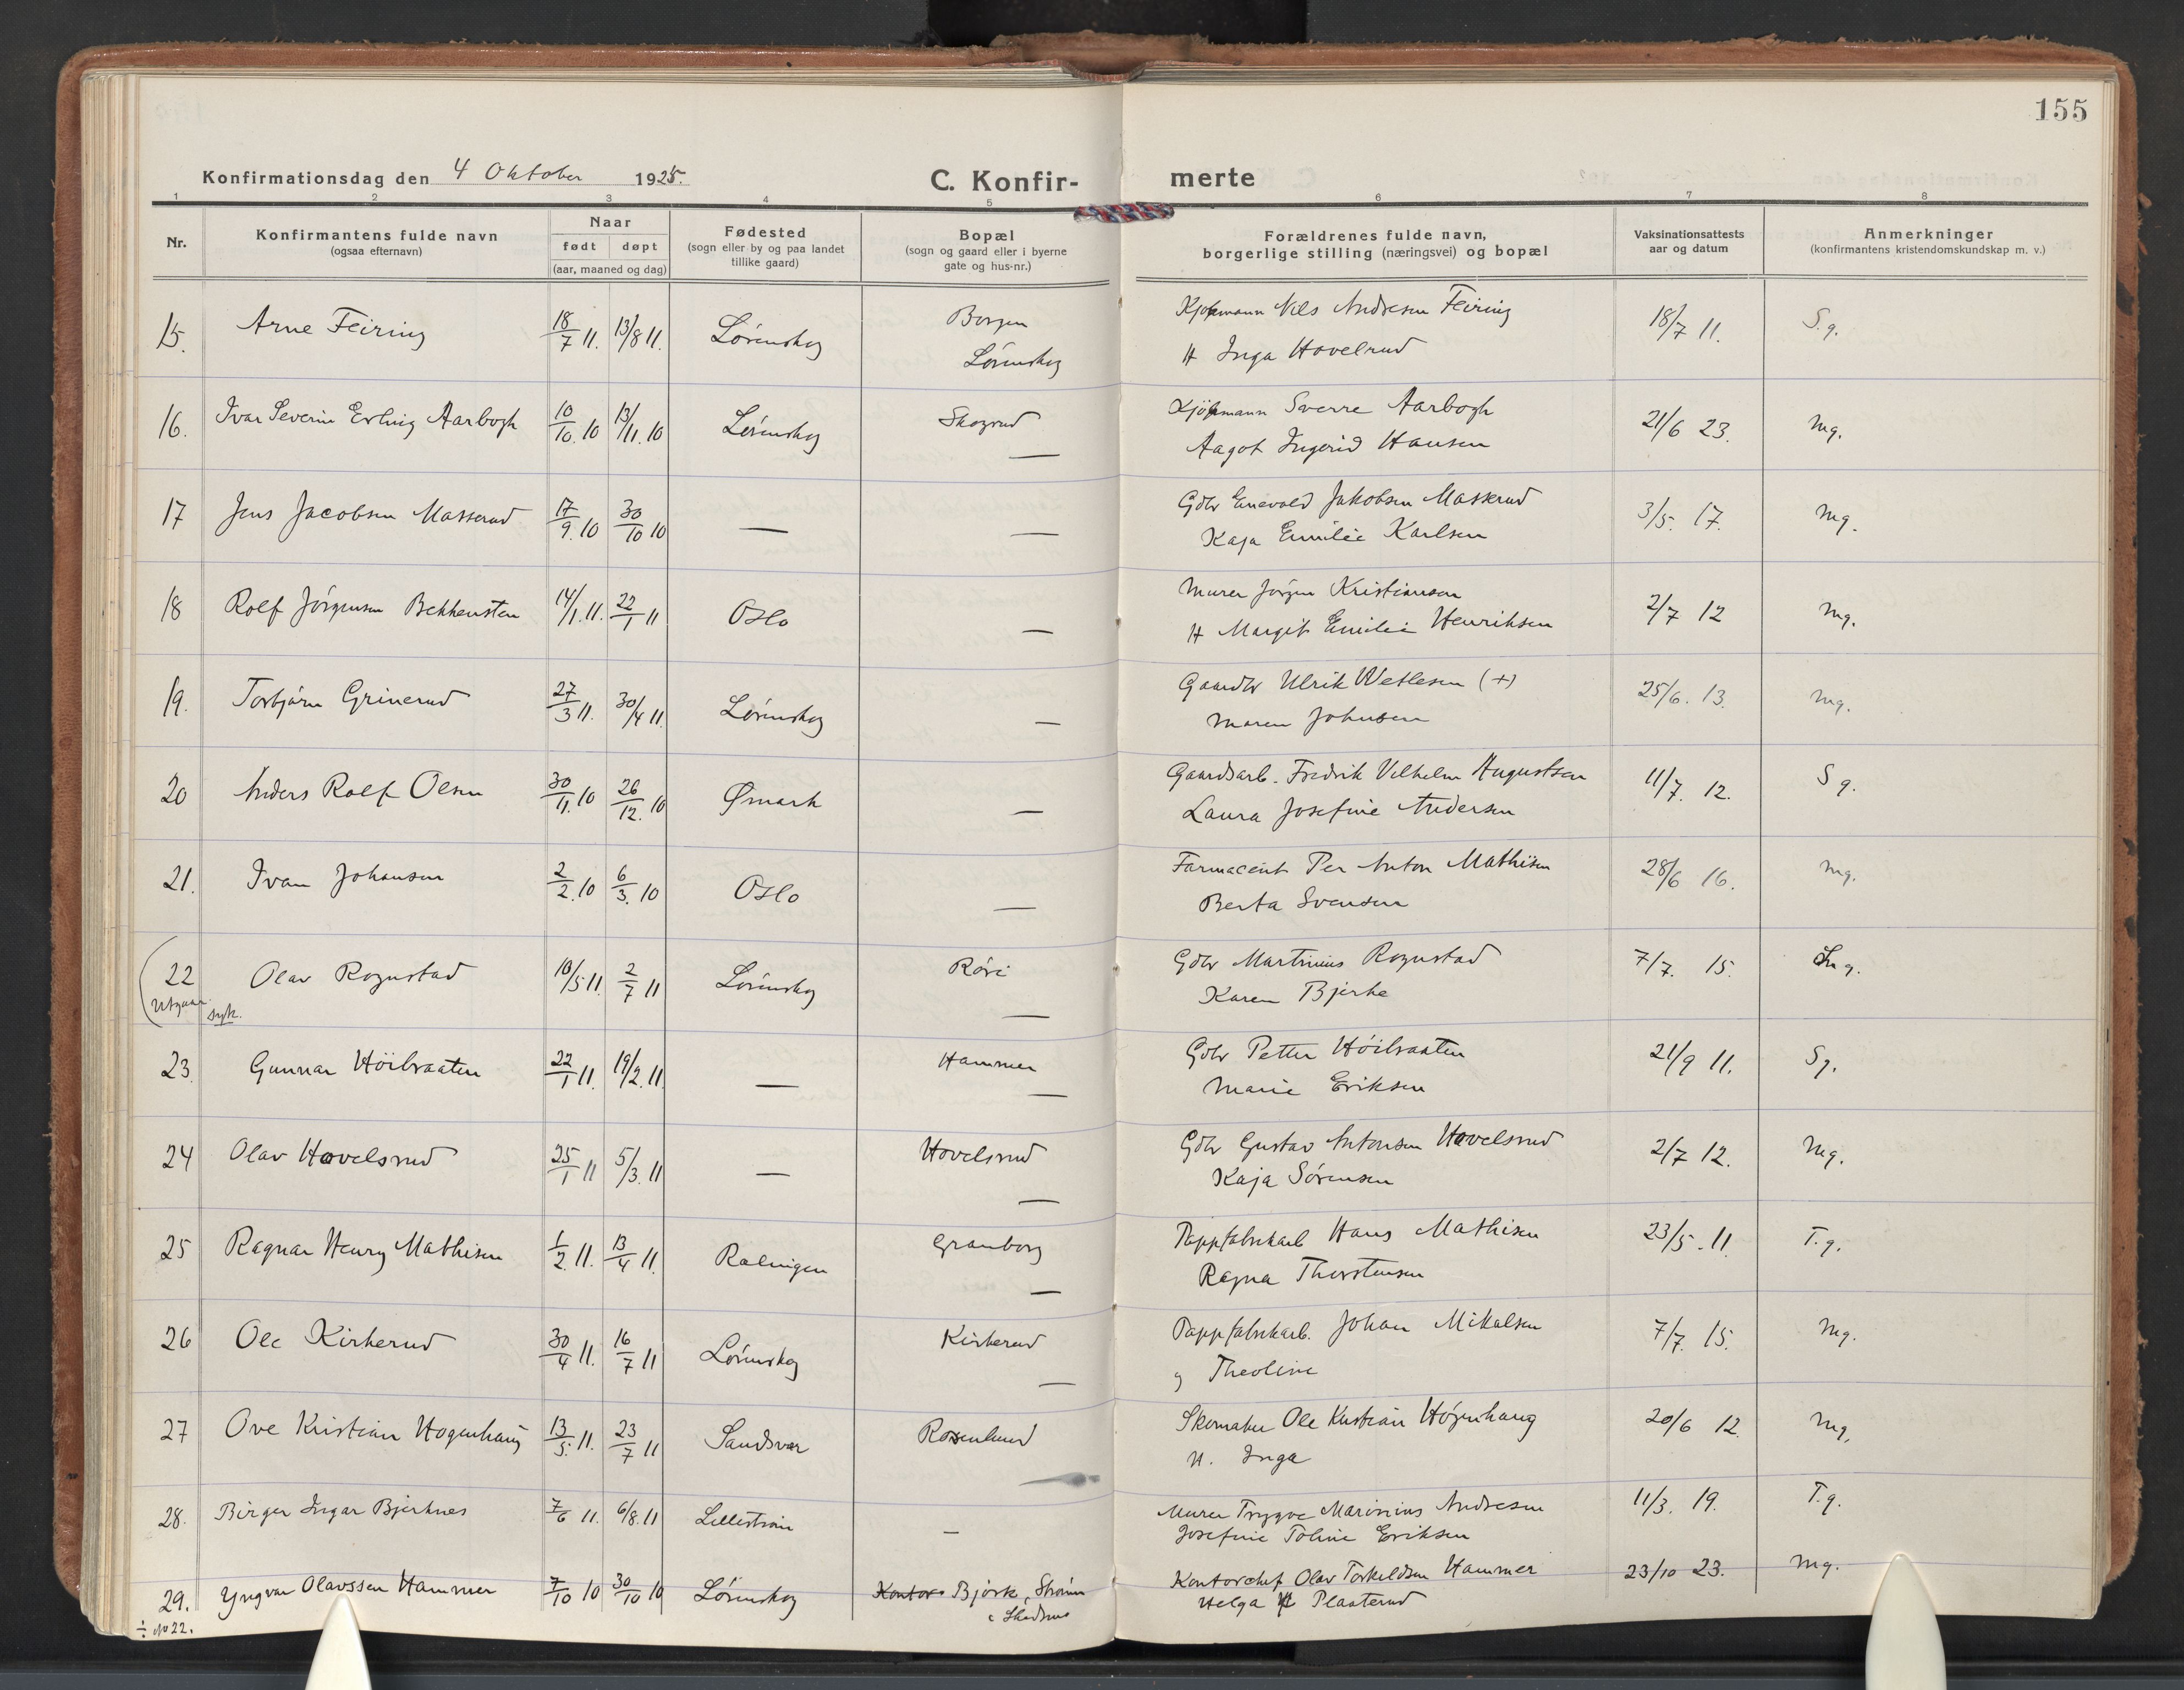 155
Konfirmationsdag den 4 Oktober 1925.
C. Konfir-
merte
1 2 3 4 5 6 7 8
Nr.
Konfirmantens fulde navn
(ogsaa efternavn)
Naar
født døpt
(aar, maaned og dag)
Fødested
(sogn eller by og paa landet
tillike gaard)
Bopæl
(sogn og gaard eller i byerne
gate og hus-nr.)
Forældrenes fulde navn,
borgerlige stilling (næringsvei) og bopæl
Vaksinationsattests
aar og datum
Anmerkninger
(konfirmantens kristendomskundskap m. v.)
15. Arne Feiring 18/7 11. 13/8 11. Lørenskog Borgen Kjøpmann Nils Andresen Feiring 18/7 11. S.g.
Lørenskog H Inga Hovelrud
16. Ivar Severin Erling Aarbogh 10/10. 10 13/11. 10 Lørenskog Skogrud Kjøpmann Sverre Aarbogh 21/6 23. Mg.
— Aagot Ingerid Hansen
17 Jens Jacobsen Masserud 17/9. 10 30/10 10 — — Gdbr Enevold Jakobsen Masserud 3/5. 17. Mg.
Kaja Emilie Karlsen
18 Rolf Jørgensen Bekkensten 14/1. 11. 22/1 11 Oslo — Murer Jørgen Kristiansen 2/7 12 Mg.
H Margit Emilie Henriksen
19. Torbjørn Grinerud 27/3 11. 30/4 11. Lørenskog — Gaardbr Ulrik Wetlesen (+) 25/6. 13. Mg.
Maren Johnsen
20 Anders Rolf Olsen 30/11. 10 26/12. 10 Ømark — Gaardsarb. Fredrik Vilhelm Augustsen 11/7. 12. S g.
Laura Josefine Andersen
21. Ivan Johansen 2/2. 10 6/3. 10 Oslo — Farmaceut Per Anton Mathisen 28/6 16. Mg.
Berta Svensen
22 Olav Rognstad 10/5 11. 2/7 11 Lørenskog Røri Gdbr Martinius Rognstad 7/7. 15. g.
Utgaar syk. — Karen Bjerke
23 Gunnar Høibraaten 22/1 11. 19/2. 11. — Hammer Gdbr Petter Høibraaten 21/9 11. Sg.
— Marie Eriksen
24 Olav Hovelsrud 25/1 11 5/3. 11 — Hovelsrud Gdbr Gustav Antonsen Hovelsrud 2/7 12. Mg.
— Kaja Sørensen
25 Ragnar Henry Mathisen 1/2. 11. 13/4 11. Ralingen Granborg Pappfabrikarb Hans Mathisen 23/5. 11. T.g.
— Ragna Thorstensen
26 Ole Kirkerud 30/4 11. 16/7 11 Lørenskog Kirkerud Pappfabrikarb. Johan Mikalsen 7/7. 15. Mg.
— g Theoline
27 Ove Kristian Hogenhaug 13/5. 11. 23/7 11 Sandsvær Rosenlund Skomaker Ole Kristian Høgenhaug 20/6 12. Mg.
H. Inga
28. Birger Ingar Bjerknes 7/6 11. 6/8. 11 Lillestrøm — Murer Trygve Marinius Andresen 11/3. 19. T.g.
Josefine Toline Eriksen
29. Yngvar Olavssen Hammer 7/10 10 30/10 10 Lørenskog Kontor Bjørk, Strømm Kontorchef Olav Torkeldsen Hammer 23/10 23. Mg.
i Skedsmo Helga Plaaterud
÷ No 22.